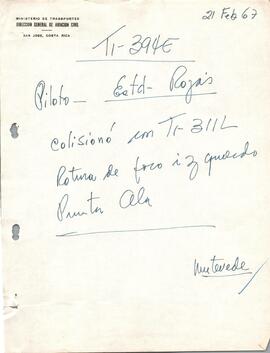 MINISTERIO DE TRANSPORTES
DIRECCION GENERAL DE AVIACION CIVIL
SAN JOSE, COSTA RICA
21 Feb 67
TI-394E
Piloto - Estd- Rojas
colisionó con TI-311L
Rotura de foco izquierdo
Punta Ala